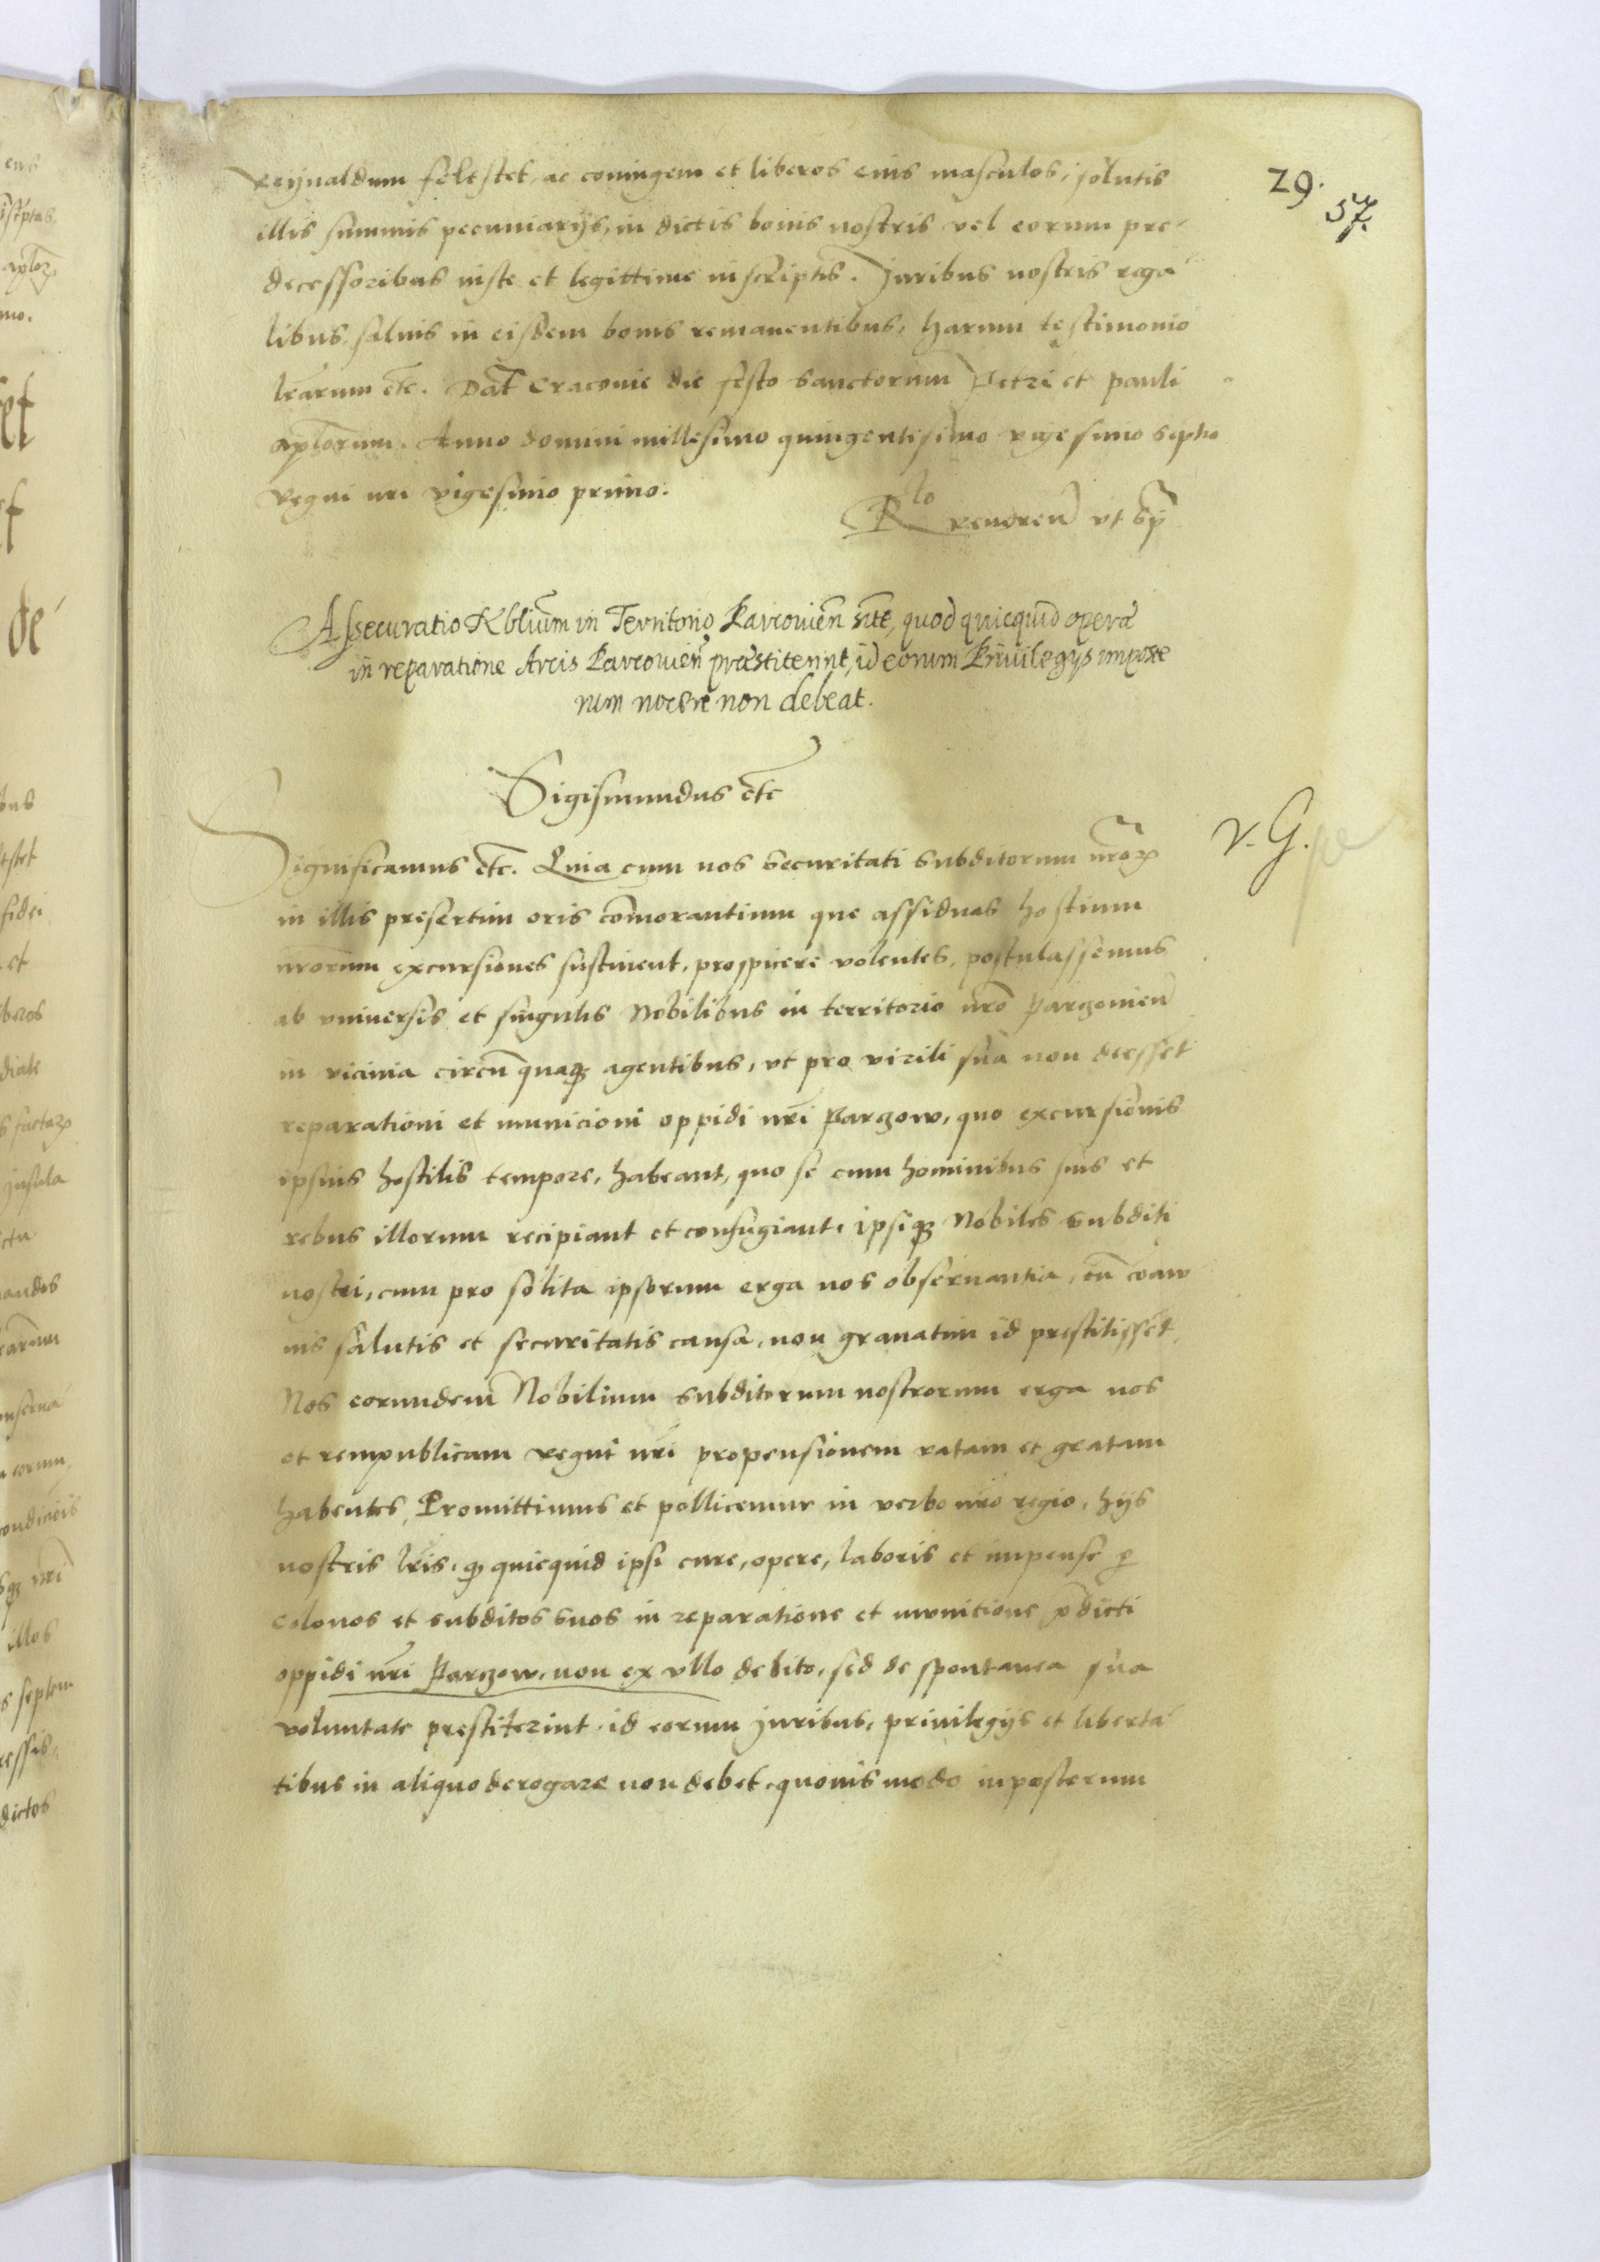 29.
57.
Reijnaldum felestet, ac coniugem et liberos eius masculos, solutis
illis summis pecuniarijs, in dictis bonis nostris vel eorum pre-
decessoribus iuste et legittime inscriptis. Juribus nostris rega-
libus, saluis in eisdem bonis remanentibus, harum testimonio
lrarum etc. Dat Cracouie die festo Sanctorum Petri et pauli
aplorum. Anno domini millesimo quingentisimo vigesimo septio
Regni nri vigesimo primo.
Rlo reueren vt Sp
Assecuratio Nblium in Territorio Parcouien site, quod quicquid operæ
in reparatione Arcis Parcouien præstiterint, id eorum Priuilegijs imposte
rum nocere non debeat.
Sigismundus etc
Significamus etc. Quia cum nos Securitati Subditorum nror
V. G.
in illis presertim oris comorantium que assiduas hostium
nrorum excursiones sustinent, prospicere volentes, postulassemus
ab vniuersis et singulis Nobilibus in territorio nro Parzouien
in vicinia circu quaq agentibus, vt pro virili sua non deesset
reparationi et municioni oppidi nri Parzow, quo excursionis
ipsius hostilis tempore, habeant, quo se cum hominibus suis et
rebus illorum recipiant et confugiant, ipsiq Nobiles Subditi
nostri, cum pro solita ipsorum erga nos obseruantia, tu coaw
nis salutis et securitatis causa, non grauatim id prestitisset,
Nos eorundem Nobilium Subditorum nostrorum erga nos
et rempublicam regni nri propensionem ratam et gratam
habentes, Promittimus et pollicemur in verbo nro regio, hijs
nostris lris, q quicquid ipsi cure, opere, laboris et impense p
colonos et subditos suos in reparatione et municione pdicti
oppidi nri Parzow, non ex vllo debito, sed de spontanea sua
voluntate prestiterint, id eorum juribus, priuilegijs et liberta-
tibus in aliquo derogare non debet, quouis modo inposterum